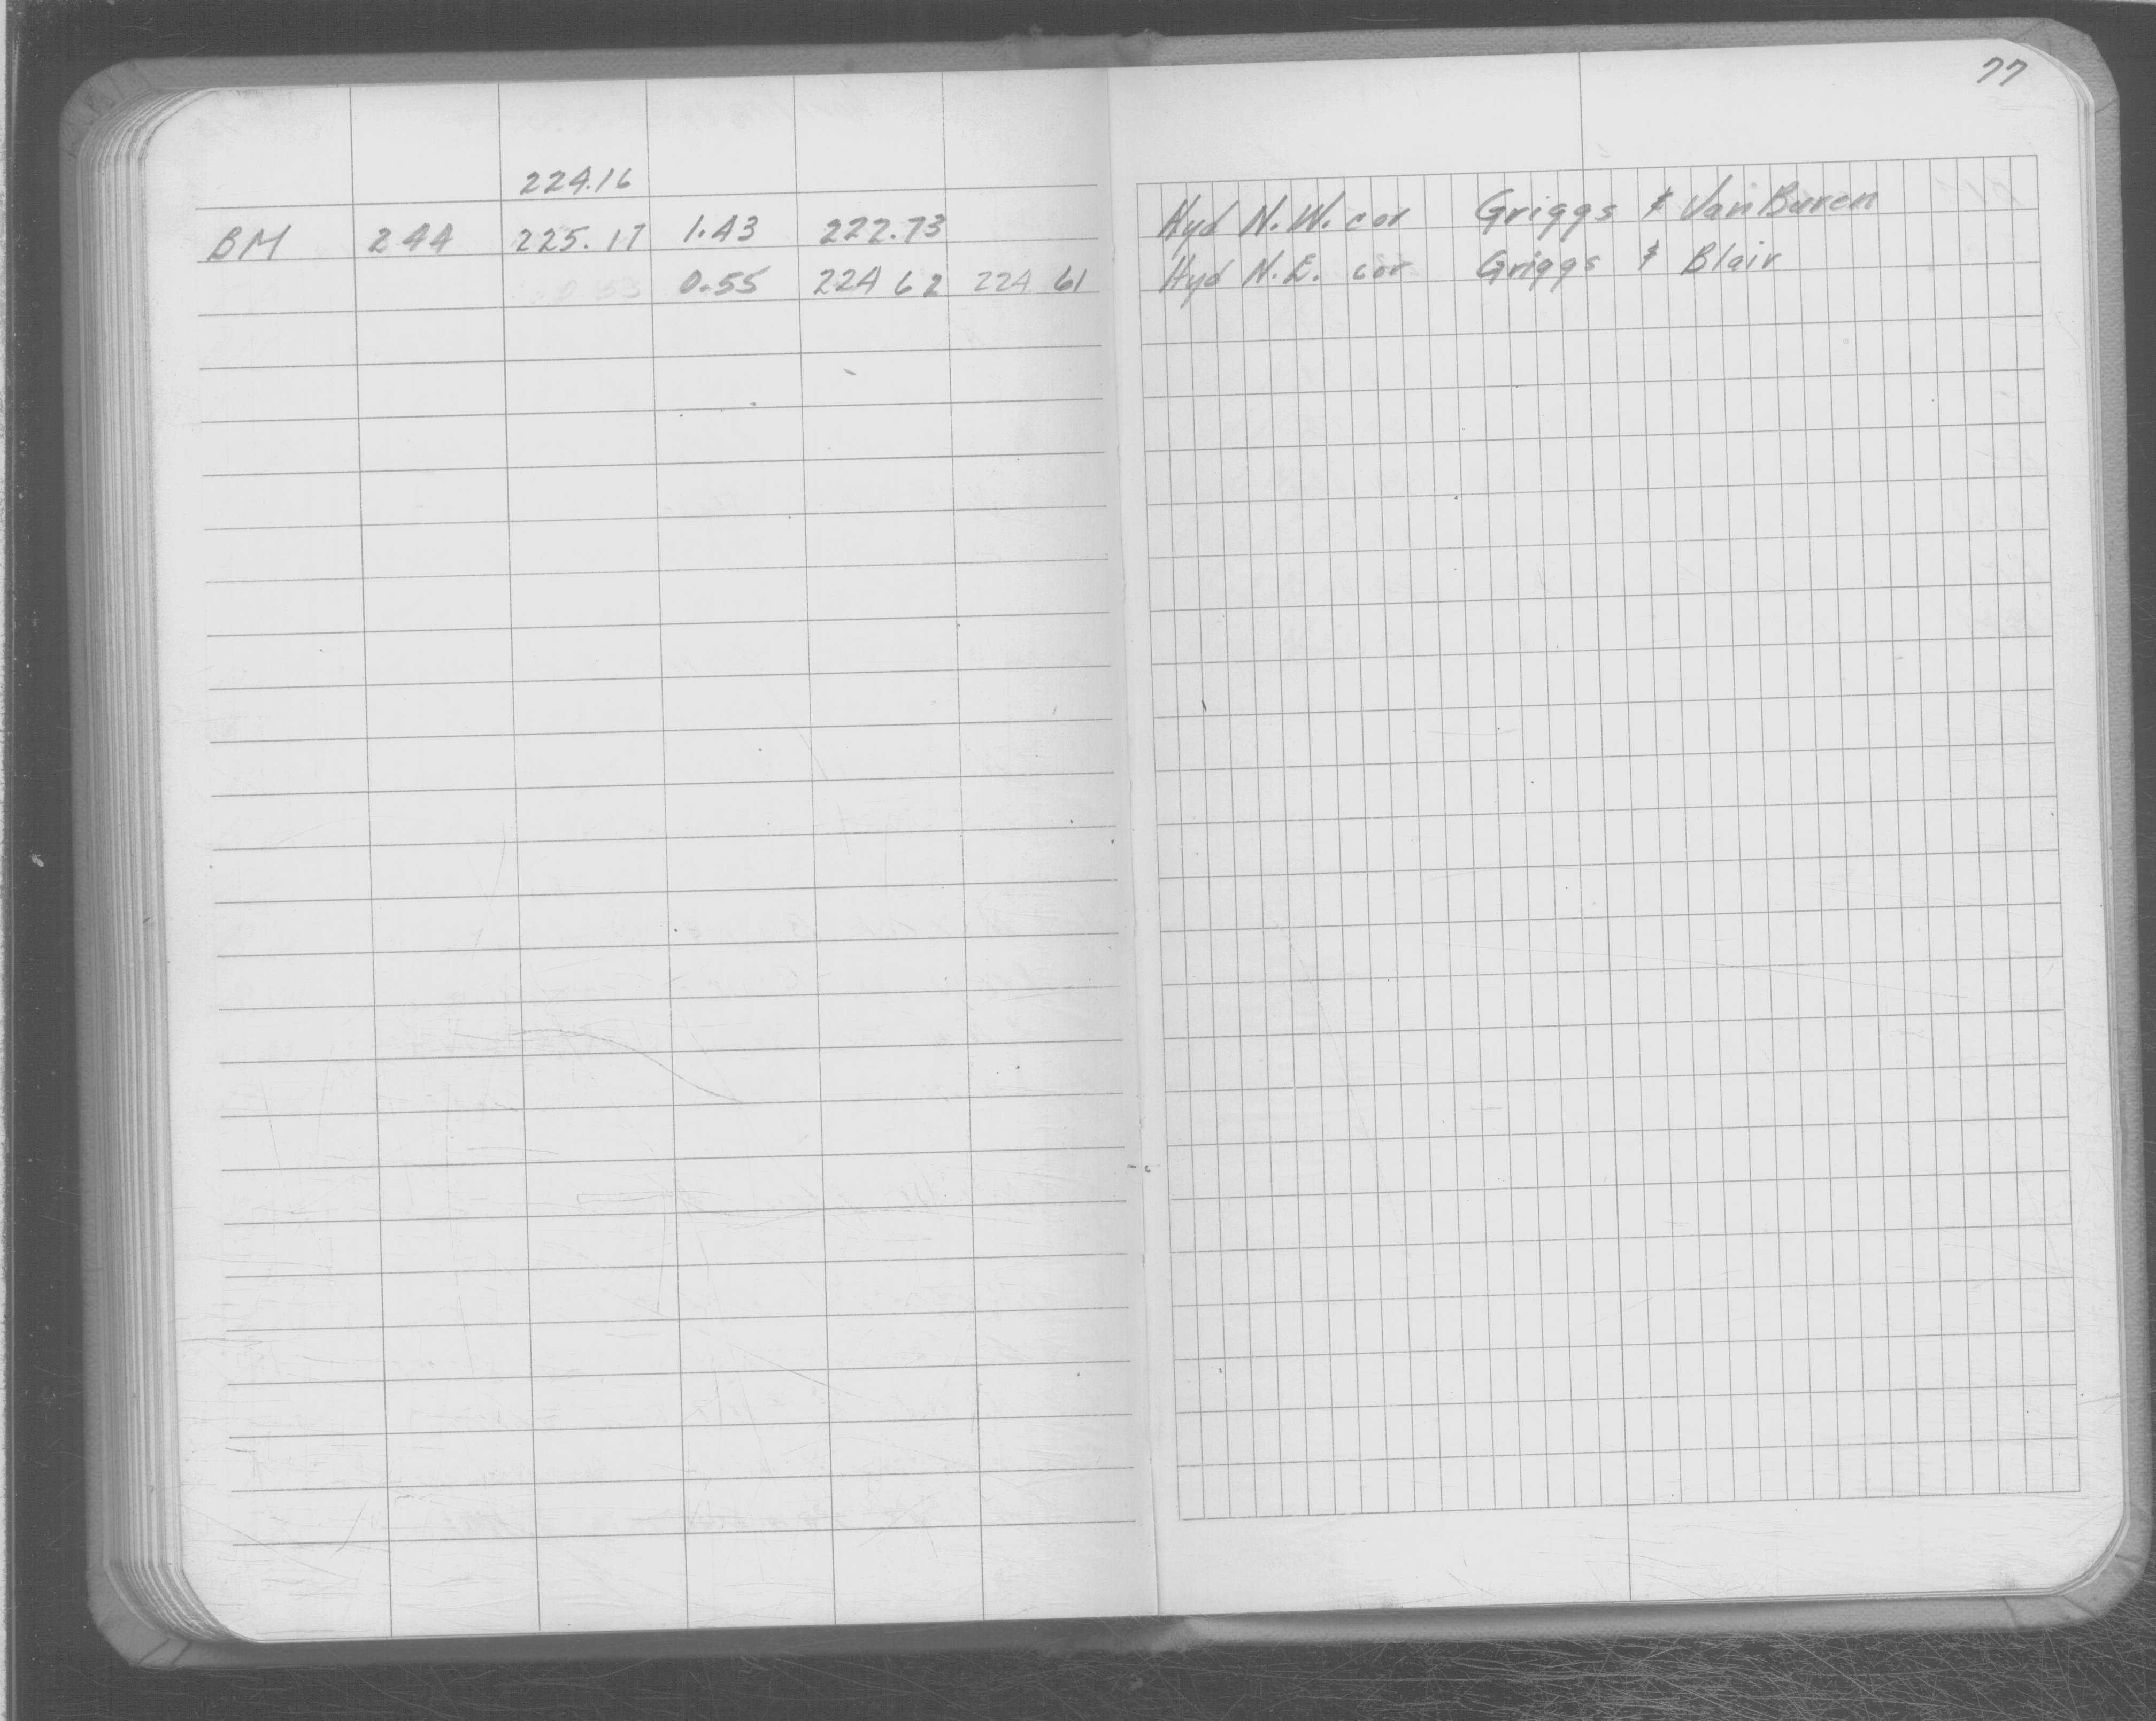 77
224.16
BM 244 225.17 1.43 222.73 Hyd N.W. cor Griggs & Van Buren
0.55 224 62 224 61 Hyd N.E. cor Griggs & Blair